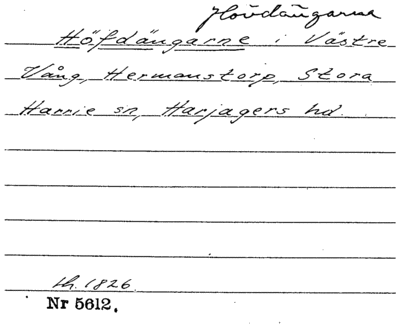 Hövdängarne
Höfdängarne i Västre
Vång, Hermanstorp, Stora
Harrie sn, Harjagers hd.
lh. 1826.
Nr 5612.